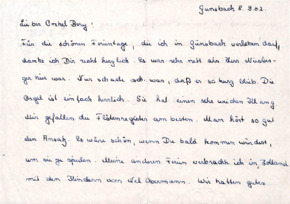 Günsbach 8.9.62.
Lieber Onkel Bery!
Für die schönen Ferientage, die ich in Günsbach verleben darf,
danke ich Dir recht herzlich. Es war sehr nett als Herr
hier war. Nur schade war, daß er so kurz blieb. Die
Orgel ist einfach herrlich. Sie hat einen sehr weichen Klang
gefallen die Flötenregister am besten. Man hört so gut
den Ansatz. Es wäre schön, wenn Du bald kommen würdest,
um sie zu spielen. Meine anderen Ferien verbrachte ich in Holland
mit den Kindern von Obermann. Wir hatten gutes